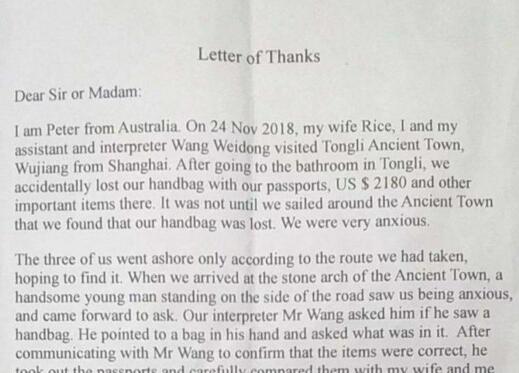 Letter of Thanks
Dear Sir or Madam:
I am Peter from Australia. On 24 Nov 2018, my wife Rice, I and my
assistant and interpreter Wang Weidong visited Tongli Ancient Town,
Wujiang from Shanghai. After going to the bathroom in Tongli, we
accidentally lost our handbag with our passports, US $ 2180 and other
important items there. It was not until we sailed around the Ancient Town
that we found that our handbag was lost. We were very anxious.
The three of us went ashore only according to the route we had taken,
hoping to find it. When we arrived at the stone arch of the Ancient Town, a
handsome young man standing on the side of the road saw us being anxious,
and came forward to ask. Our interpreter Mr Wang asked him if he saw a
handbag. He pointed to a bag in his hand and asked what was in it. After
communicating with Mr Wang to confirm that the items were correct, he
took out the passports and carefully compared them with my wife and me